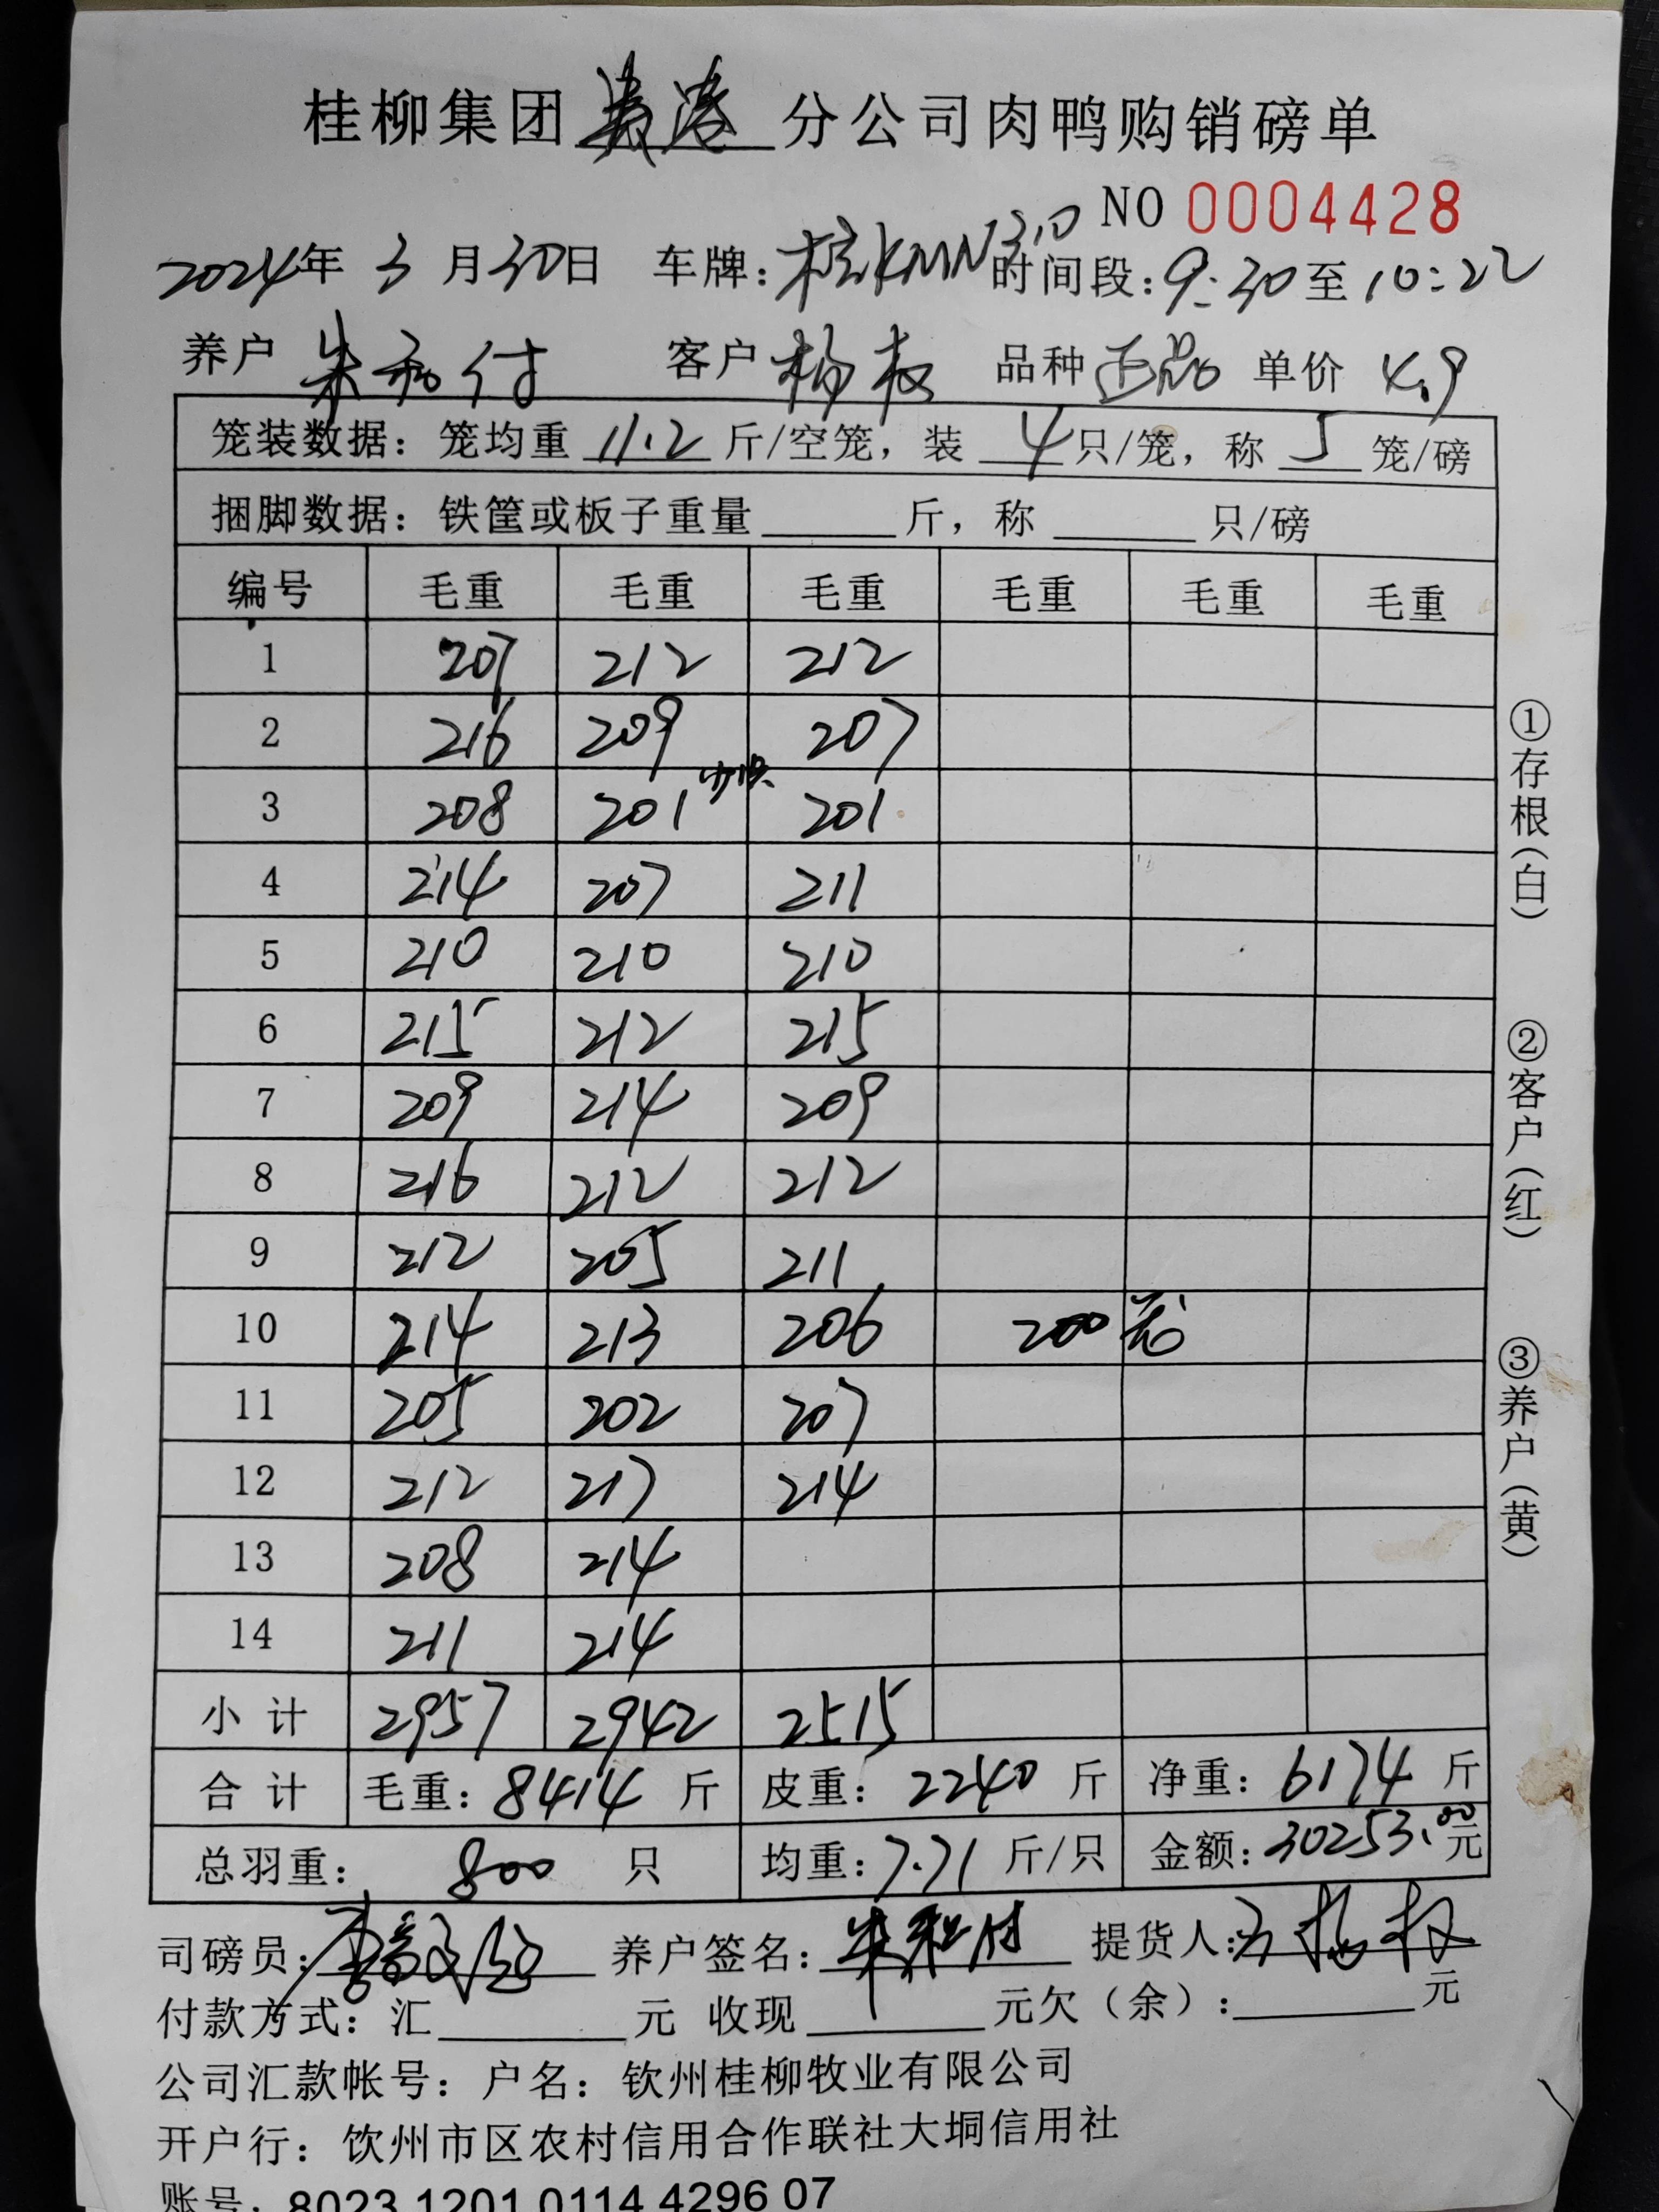 桂柳集团贵港分公司肉鸭购销磅单
NO 0004428
2024年 3 月 30日 车牌: 时间段:9:30至10:22
养户 朱 付 客户 杨权 品种 正品 单价 4.9
笼装数据: 笼均重 11.2 斤/空笼, 装 4 只/笼, 称 5 笼/磅
捆脚数据: 铁筐或板子重量 斤, 称 只/磅
编号 毛重 毛重 毛重 毛重 毛重 毛重
1 207 212 212
2 216 209 207
3 208 201 少1只 201
4 214 207 211
5 210 210 210
6 215 212 215
7 209 214 209
8 216 212 212
9 212 205 211
10 214 213 206 200笼
11 205 202 207
12 212 217 214
13 208 214
14 211 214
小计 2957 2942 2515
合计 毛重: 8414 斤 皮重: 2240 斤 净重: 6174 斤
总羽重: 800 只 均重: 7.71 斤/只 金额: 30253.00元
司磅员: 养户签名: 朱 提货人: 杨权
付款方式: 汇 元 收现 元欠（余）: 元
公司汇款帐号: 户名: 钦州桂柳牧业有限公司
开户行: 饮州市区农村信用合作联社大垌信用社
账号: 8023 1201 0114 4296 07
①存根（白）
②客户（红）
③养户（黄）